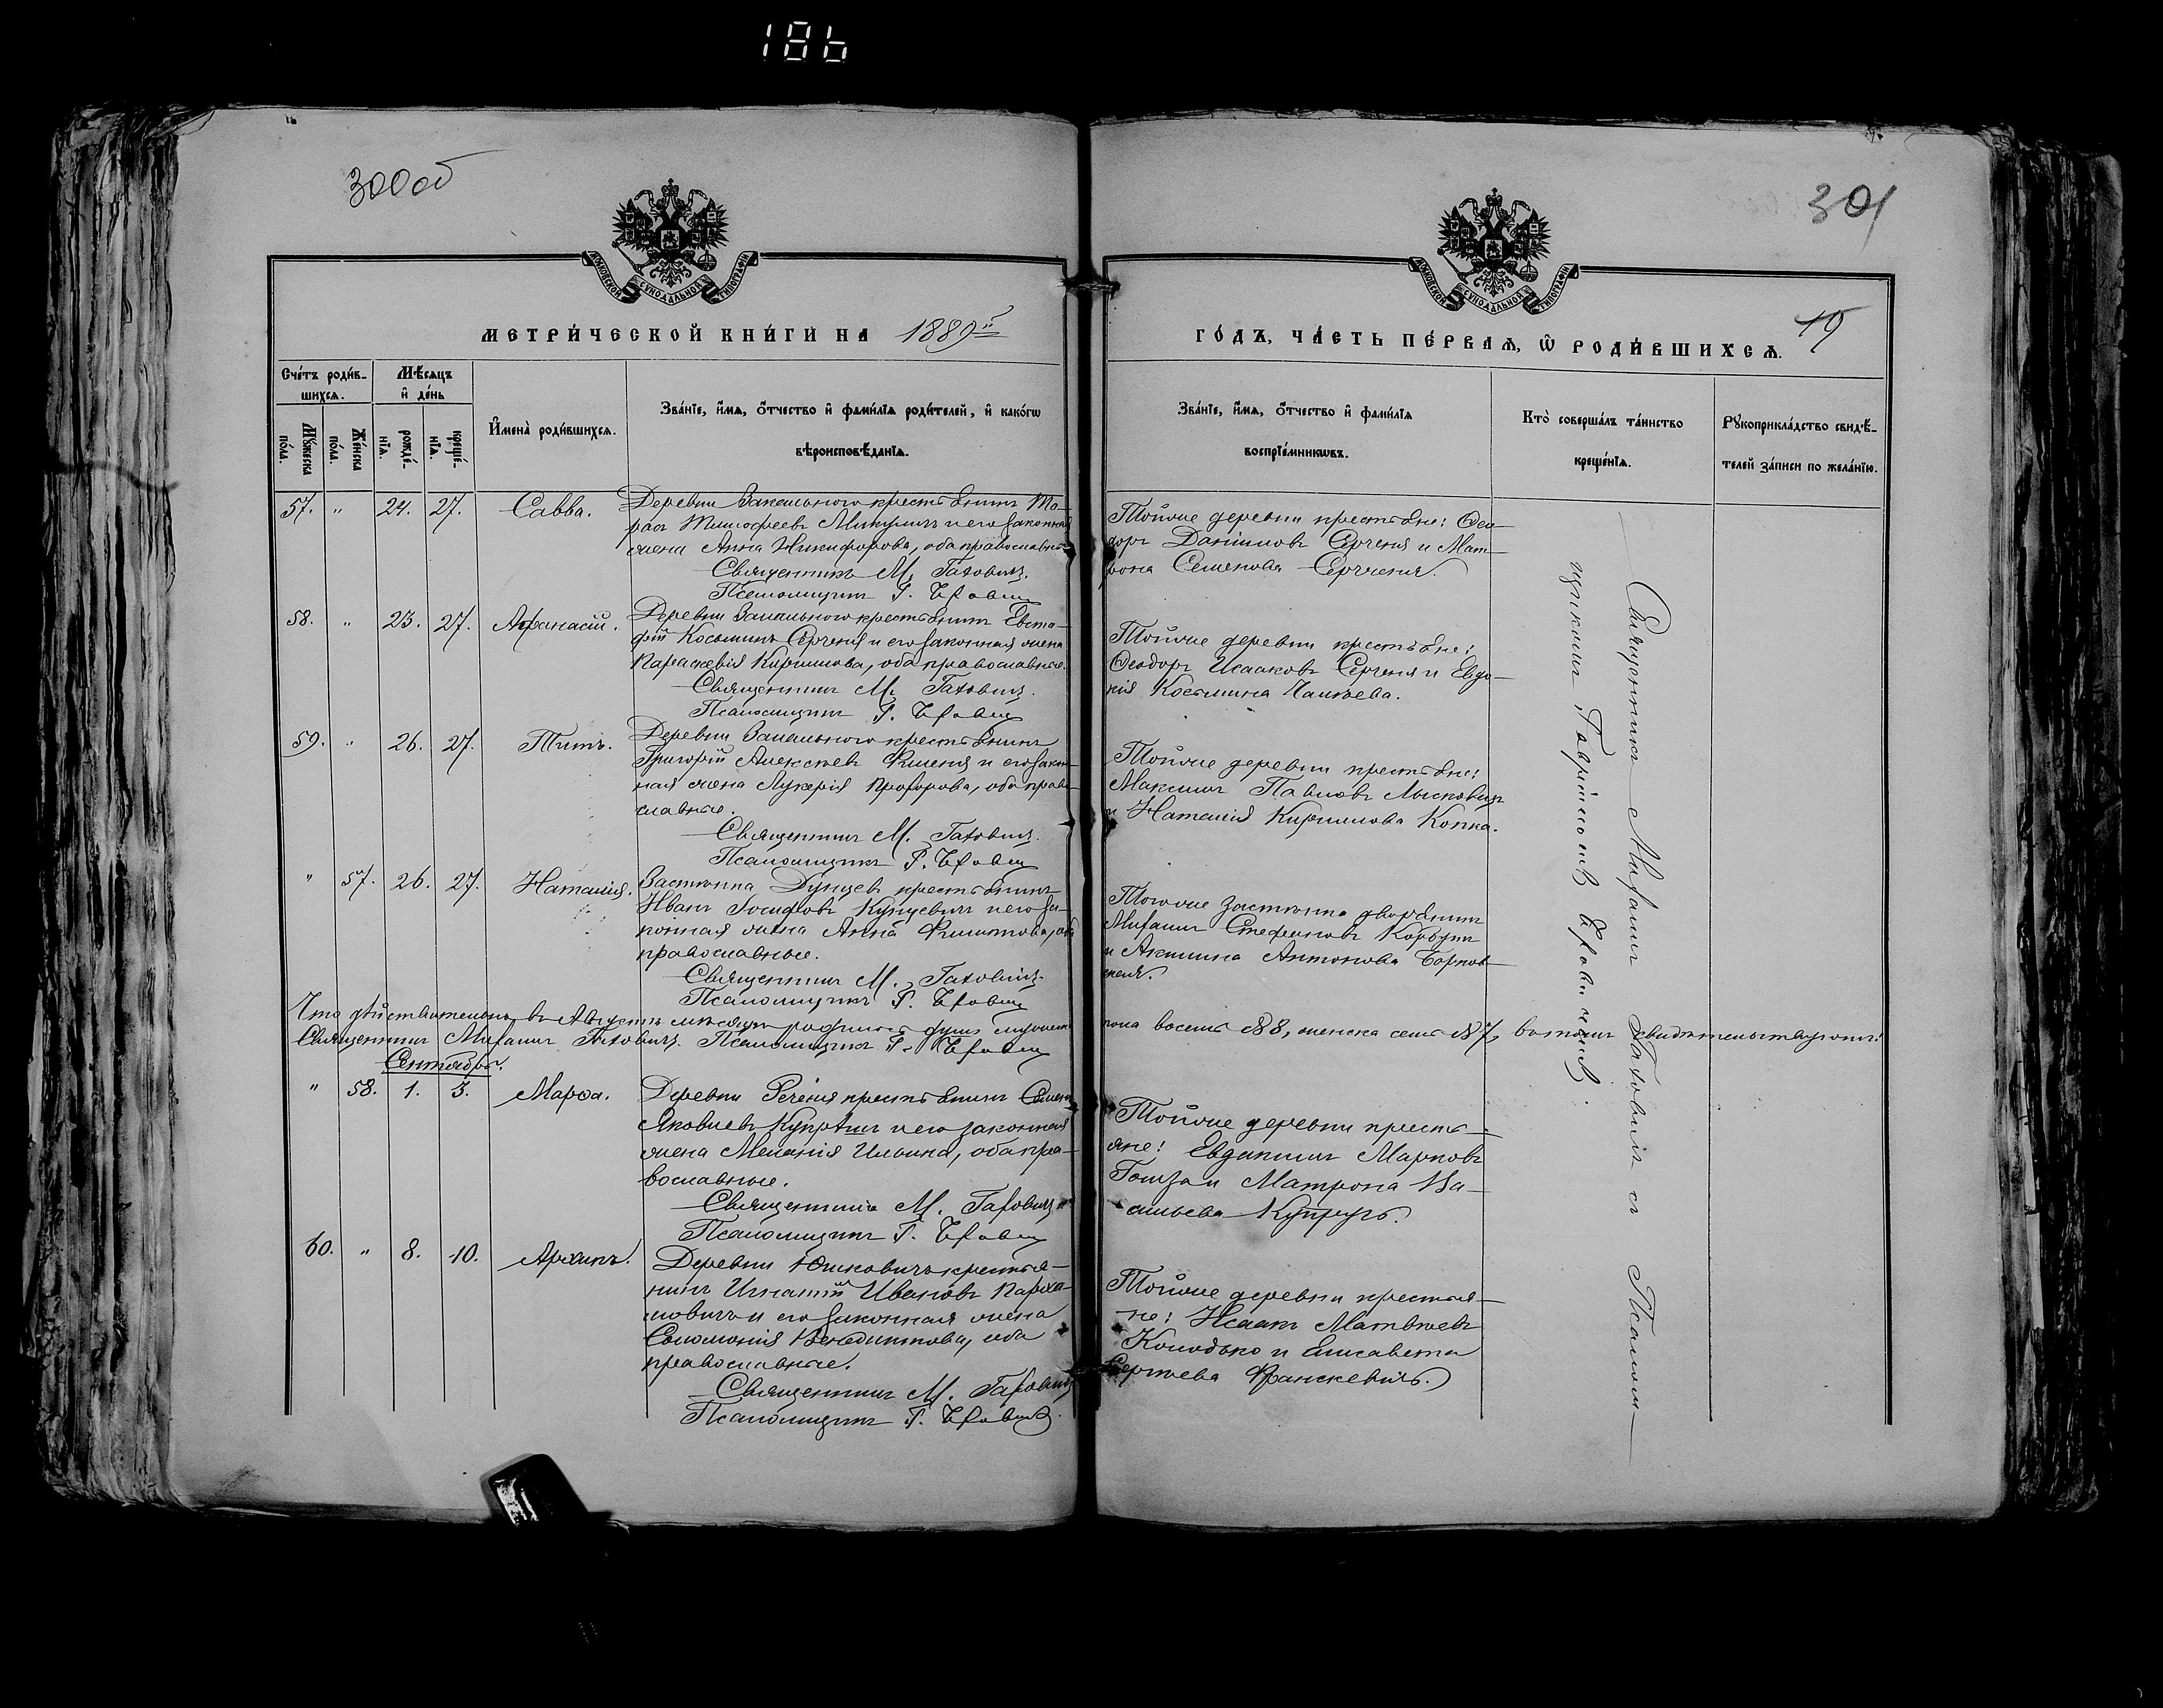 186
300об
301
МОСКОВСКОЙ СѴНОДАЛЬНОЙ ТИПОГРАФІИ
МОСКОВСКОЙ СѴНОДАЛЬНОЙ ТИПОГРАФІИ
МЕТРИ́ЧЕСКОЙ КНИ́ГИ НА 1889й
ГО́ДЪ, ЧА́СТЬ ПЕ́РВАѦ, Ѡ РОДИ́ВШИХСѦ. 19
Сче́тъ роди́в-
шихсѧ.
Мѣ́сяцъ
и҆ де́нь
Мꙋ́жеска по́ла.
Же́нска по́ла.
рожде́-нїѧ.
креще́-нїѧ.
И҆мена̀ роди́вшихсѧ.
Зва́нїе, и҆́мѧ, ѻ҆́тчество и҆ фами́лїѧ роди́телей, и҆ како́гѡ
вѣроисповѣ́данїѧ.
Зва́нїе, и҆́мѧ, ѻ҆́тчество и҆ фами́лїѧ
воспрїе́мникѡвъ.
Кто̀ соверша́лъ та́инство
креще́нїѧ.
Рꙋкоприкла́дство свидѣ́-
телей за́писи по жела́нїю.
57. " 24. 27. Савва.
Деревни Запального крестьянинъ Та-
расъ Тимофеевъ Микуличъ и его законная
жена Анна Никифорова, оба православные
Священникъ М. Гахович.
Псаломщикъ Г.
Тойже деревни крестьяне: Ѳео-
доръ Даніиловъ Серченя и Мат-
рона Семенова Серченя.
58. " 23. 27. Афанасій.
Деревни Запального крестьянинъ Евста-
фій Косьминъ Серченя и его законная жена
Параскевія Кирилова, оба православные.
Священникъ М. Гахович.
Псаломщикъ Г.
Тойже деревни крестьяне:
Ѳеодоръ Исааковъ Серченя и Евдо-
кія Косьмина
59. " 26. 27. Титъ.
Деревни Запального крестьянинъ
Григорій Алексѣевъ и его закон-
ная жена Лукерія Прохорова, оба право-
славные.
Священникъ М. Гахович.
Псаломщикъ Г.
Тойже деревни крестьяне:
Максимъ Павловъ Лысковичъ
и Наталія Кирилова Копка.
" 57. 26. 27. Наталія.
Застѣнка крестьянинъ
Иванъ Іосифовъ Кунцевичъ и его за-
конная жена Анна Филиппова, оба
православные.
Священникъ М. Гахович.
Псаломщикъ Г.
Тогоже застѣнка дворянинъ
Михаилъ Стефановъ Корбутъ
и Акилина Антонова Борков-
ская.
Что дѣйствительно въ Августѣ мѣсяцѣ родилось душъ мужеска
пола восемь №8, женска семь №7, въ томъ свидѣтельствуютъ:
Священникъ Михаилъ Гахович. Псаломщикъ Г.
Сентябрь.
" 58. 1. 3. Марѳа.
Деревни Реченя крестьянинъ Семенъ
Яковлевъ и его законная
жена Меланія Ильина, оба пра-
вославные.
Священникъ М. Гахович
Псаломщикъ Г.
Тойже деревни кресть-
яне: Евдокимъ Марковъ
Гомза и Матрона Ва-
сильева Купрусь.
60. " 8. 10. Архипъ.
Деревни Юшковичъ крестья-
нинъ Игнатій Ивановъ
и его законная жена
Соломонія Венедиктова, оба
православные.
Священникъ М. Гахович
Псаломщикъ Г.
Тойже деревни крестья-
не: Исаакъ Матвѣевъ
Колодько и Елисавета
Сергѣева Франскевичъ.
Священникъ Михаилъ Гаховичъ съ Псалом-
щикомъ Гавріиломъ